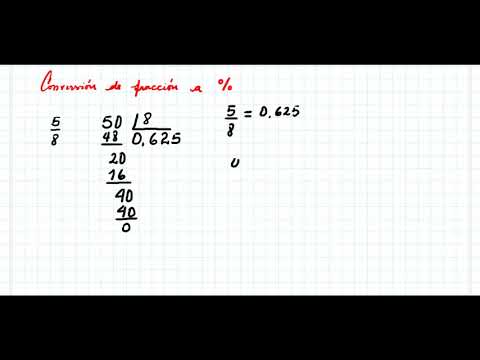 Conversión de fracción a %
5/8
50 | 8
48 0.625
20
16
40
40
0
5/8 = 0.625